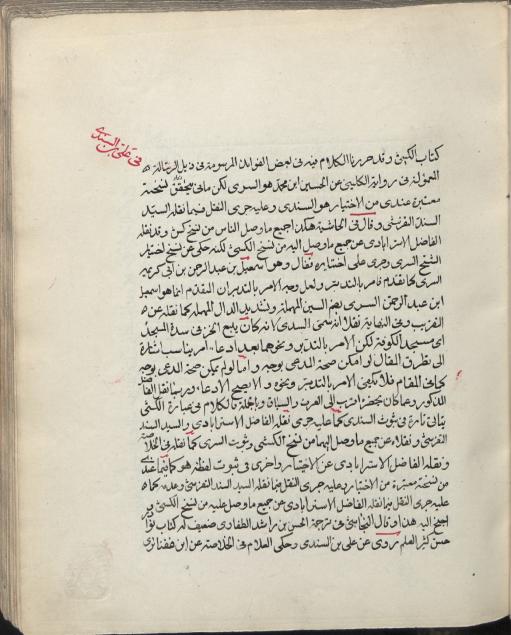 في علي بن السندي
كتاب الكشي وقد حررنا الكلام فيه في بعض الفوائد المرسومة في ذيل الرسالة
المعمولة في رواية الكليني عن الحسين ابن محمد هو السري لكن ما في نسخة
معتبرة عندي من الاختيار هو السندي وعليه جرى النقل فيما نقله السيد
السند التفرشي وقال في الحاشية هكذا جميع ما وصل الناس من نسخ كش وقد نقله
الفاضل الاسترابادي عن جميع ما وصل اليه من نسخ الكشي لكنه حكى عن نسخ اختيار
الشيخ السري وجرى على اختياره فقال وهو اسمعيل بن عبد الرحمن بن ابي كريمه
السري كما تقدم فامر بالتدبر ولعل وجه الامر بالتدبر ان المقدم انما هو اسمعيل
ابن عبد الرحمن السدي بضم السين المهملة وتشديد الدال المهملة كما نقله عن
التقريب وفي النهاية نقلا انه سمى السدي لانه كان يبيع الخز في سدة المسجد
اى مسجد الكوفة لكن الامر بالتدبر ونحوهما بعيد ادعاء امر يناسب اشارة
الى تطرق المقال لو امكن صحة المدعى بوجه واما لو لم يمكن صحة المدعى بوجه
كما في المقام فلا يكفى الامر بالتدبر ونحوه ولا يصح الادعاء وربما نقل الفاضل
المذكور
وبالجملة فالكلام في عبارة الكشي
تارة في ثبوت السندي كما عليه جرى نقله الفاضل الاسترابادي والسيد السند
التفرشي ونقلاه عن جميع ما وصل اليهما من نسخ الكشي وثبوت السري كما نقله في الخلاصة
ونقله الفاضل الاسترابادي عن الاختيار واخرى في ثبوت لفظة هو كما فيما عندي
من نسخة معتبرة من الاختيار وعليه جرى النقل فيما نقله السيد السند التفرشي وعدمه كما
عليه جرى النقل فيما نقله الفاضل الاسترابادي عن جميع ما وصل عليه من نسخ الكشي
هذا وقال النجاشي في ترجمة الحسن بن راشد الطفاوي ضعيف له كتاب نوادر
حسن كثير العلم روى عن علي بن السندي وحكى العلامة في الخلاصة عن ابن غضائري